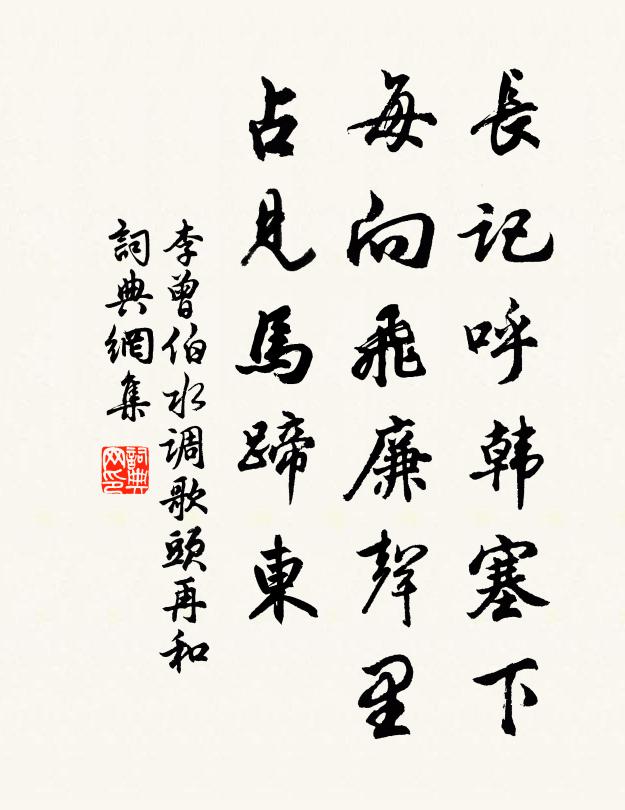 長記呼韩塞下
每向飛廉聲里
占見馬蹄東
李曾伯水调歌頭再和
詞典網集
詞典网印